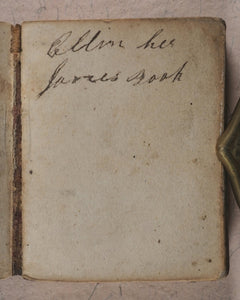 Ellin her
James Book